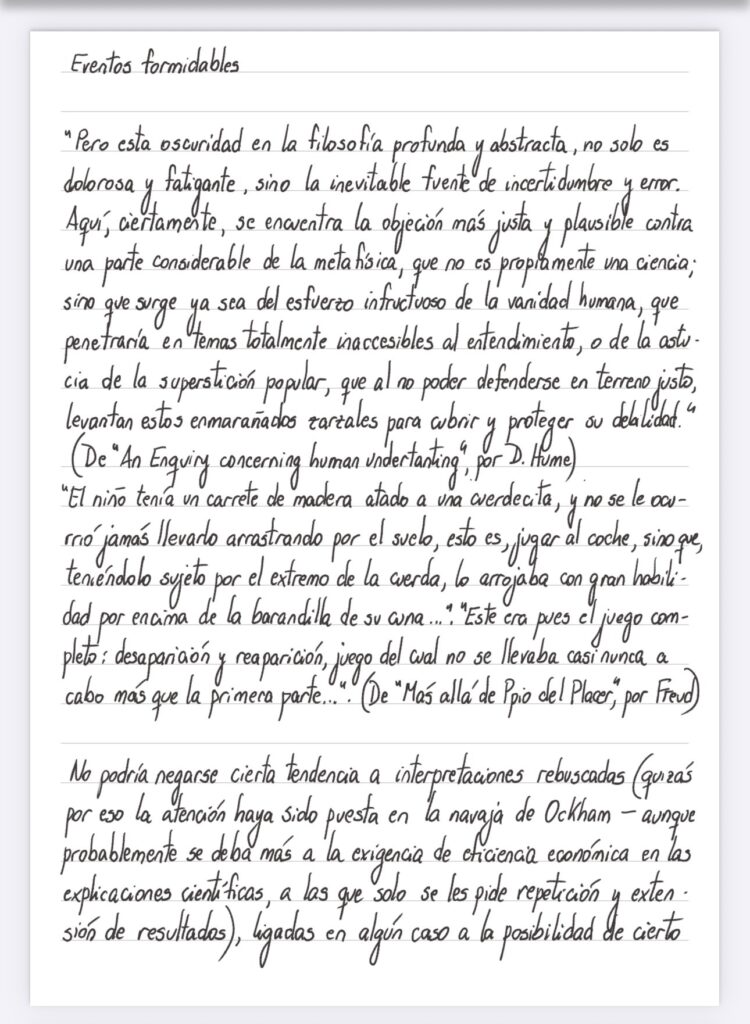 Eventos formidables
"Pero esta oscuridad en la filosofía profunda y abstracta, no solo es
dolorosa y fatigante, sino la inevitable fuente de incertidumbre y error.
Aquí, ciertamente, se encuentra la objeción más justa y plausible contra
una parte considerable de la metafísica, que no es propiamente una ciencia;
sino que surge ya sea del esfuerzo infructuoso de la vanidad humana, que
penetraría en temas totalmente inaccesibles al entendimiento, o de la astu-
cia de la superstición popular, que al no poder defenderse en terreno justo,
levantan estos enmarañados zarzales para cubrir y proteger su debilidad."
(De "An Enquiry concerning human undertanting", por D. Hume)
"El niño tenía un carrete de madera atado a una cuerdecita, y no se le ocu-
rrió jamás llevarlo arrastrando por el suelo, esto es, jugar al coche, sino que,
teniéndolo sujeto por el extremo de la cuerda, lo arrojaba con gran habili-
dad por encima de la barandilla de su cuna...". "Este era pues el juego com-
pleto: desaparición y reaparición, juego del cual no se llevaba casi nunca a
cabo más que la primera parte...". (De "Más allá de Ppio del Placer", por Freud)
No podría negarse cierta tendencia a interpretaciones rebuscadas (quizás
por eso la atención haya sido puesta en la navaja de Ockham – aunque
probablemente se deba más a la exigencia de eficiencia económica en las
explicaciones científicas, a las que solo se les pide repetición y exten-
sión de resultados), ligadas en algún caso a la posibilidad de cierto